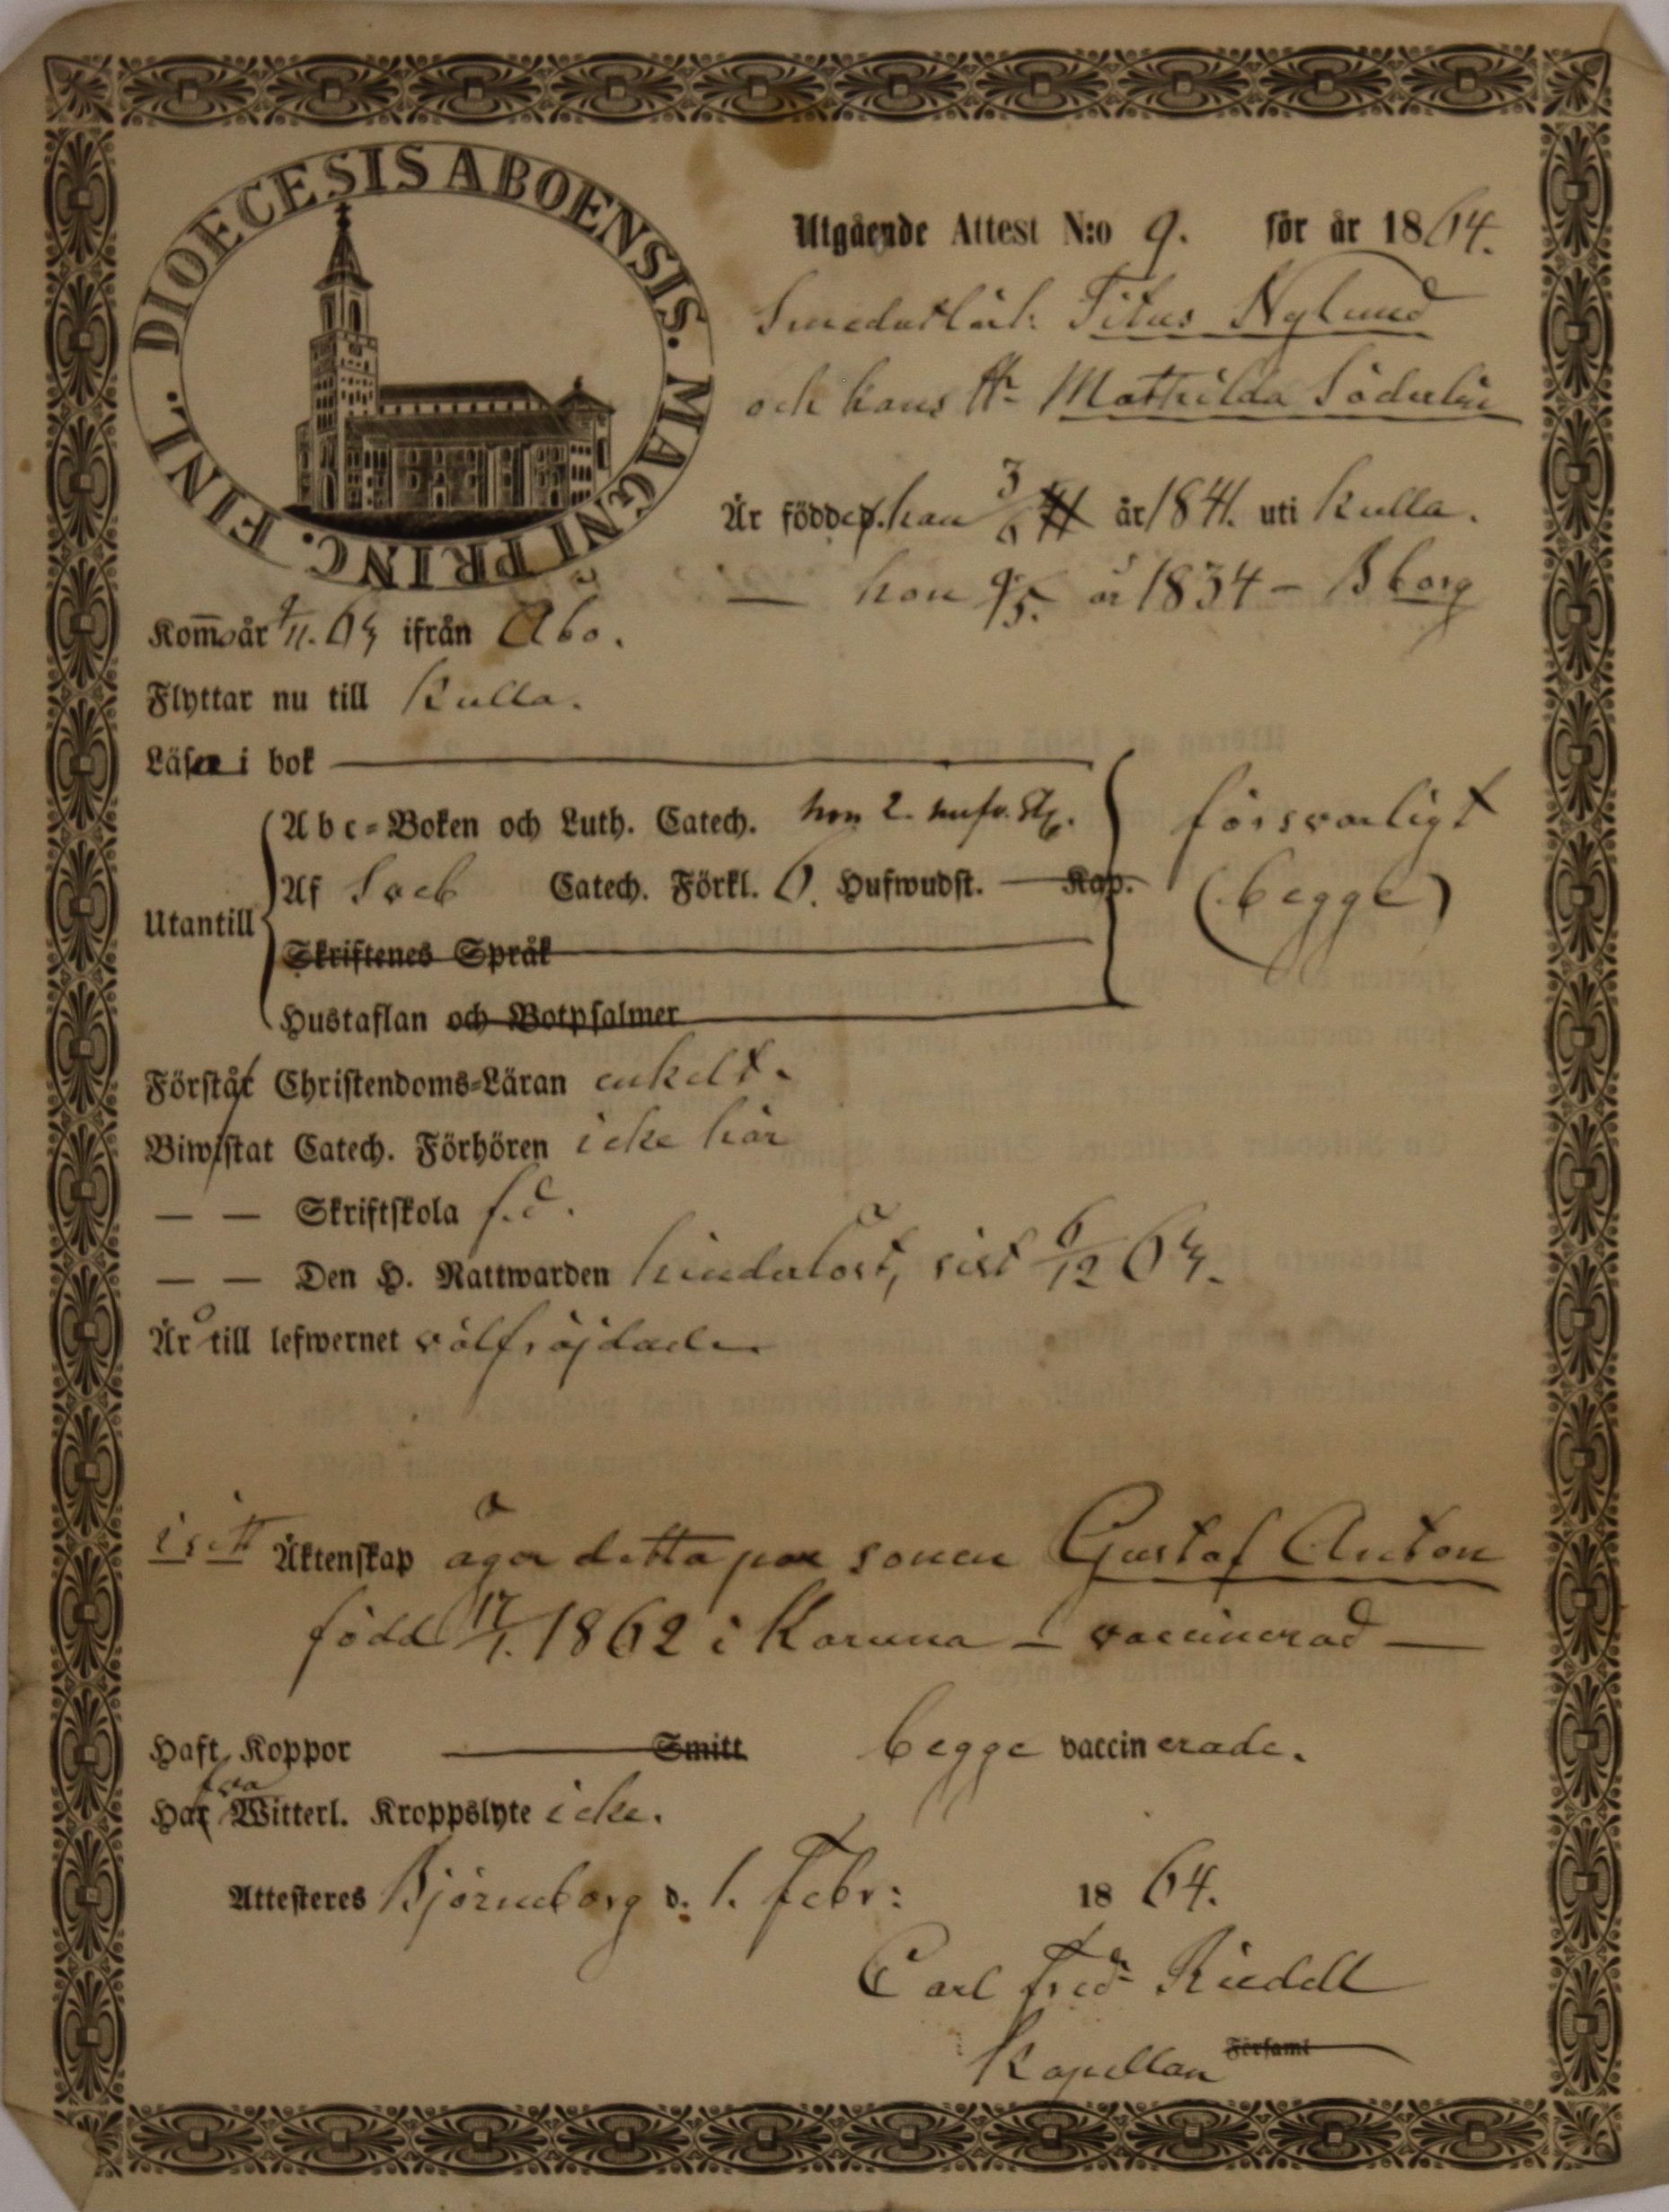 DIOECESIS ABOENSIS. MAGNI PRINC. FINL.
Utgående Attest N:o 9. för år 1864.
Titus Nylund
och hans Hr Mathilda Söderlin
Är födde. han 3/6 år 1841. uti Kulla.
— hon 9/5. år 1834 – Bborg
Kom̄o år 63 ifrån Åbo.
Flyttar nu till Kulla.
Läsa i bok
Utantill
Abc-Boken och Luth. Catech. hon 2.
Af Sveb Catech. Förkl. 6. Hufwudst. Kap.
Skriftenes Språk
Hustaflan och Botpsalmer
försvarligt
(begge)
Förstå Christendoms-Läran enkelt.
Biwistat Catech. Förhören icke här
— — Skriftskola f.d.
— — Den H. Nattwarden hinderlöst, sist 6/12 63.
Äro till lefwernet välfräjdade
i sitt Äktenskap äger detta par sonen Gustaf Anton
född 17/1. 1862 i Karuna – vaccinerad —
Haft Koppor Smitt begge vaccinerade.
Ha Witterl. Kroppslyte icke.
Attesteres Björneborg d. 1. Febr: 1864.
Carl Fred Riedell
Kapellan Församl